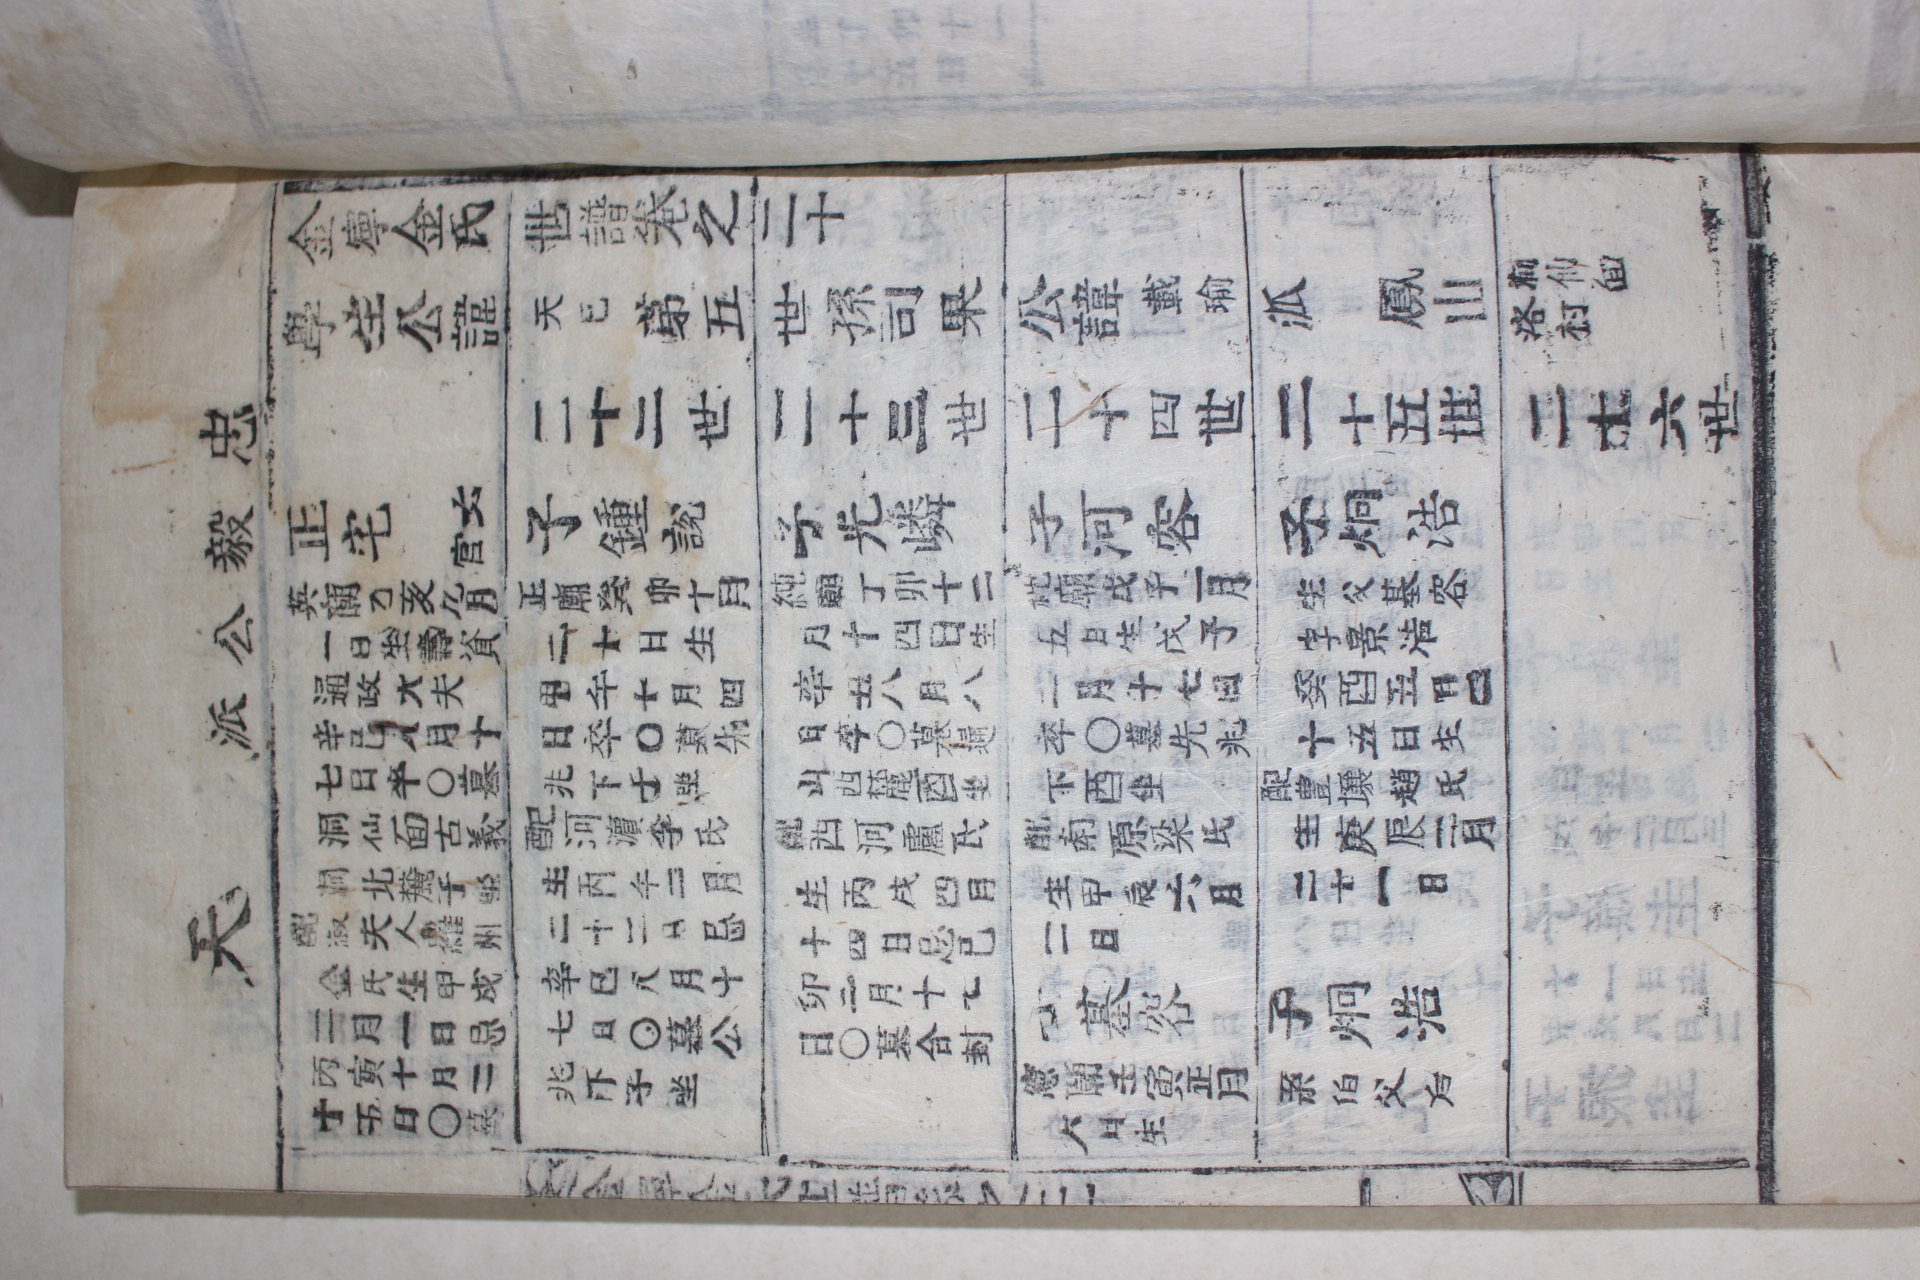 忠毅公派 天
金寧金氏世譜卷之二十
學生公諱天巳第五世孫司果公諱載瑜派 鳳山
洞仙面
洛村
二十二世
二十三世
二十四世
二十五世
二十六世
正宅
文官
英廟乙亥九月
一日生壽資
通政大夫
辛巳八月十
七日卒〇墓
洞仙面古義
洞北麓子坐
配淑夫人羅州
金氏生甲戌
二月一日忌
丙寅十月二
十五日〇墓
子鍾說
正廟癸卯十月
二十日生
甲午十月四
日卒〇墓先
兆下子坐
配河濱李氏
生丙午二月
二十二日忌
辛巳八月十
七日〇墓公
兆下子坐
子光嶙
純廟丁卯十二
月十四日生
辛丑八月八
日卒〇墓通
山西麓酉坐
配西河盧氏
生丙戌四月
十四日忌己
卯二月十七
日〇墓合封
子河容
純廟戊子二月
五日生戊子
二月十七日
卒〇墓先兆
下酉坐
配南原梁氏
生甲辰六月
二日
子基容
憲廟壬寅正月
六日生
子炯浩
生父基容
字景浩
癸酉五月四
十五日生
配豊壤趙氏
生庚辰二月
二十一日
子炯浩
系伯父后
金寧金氏世譜卷之二十
一